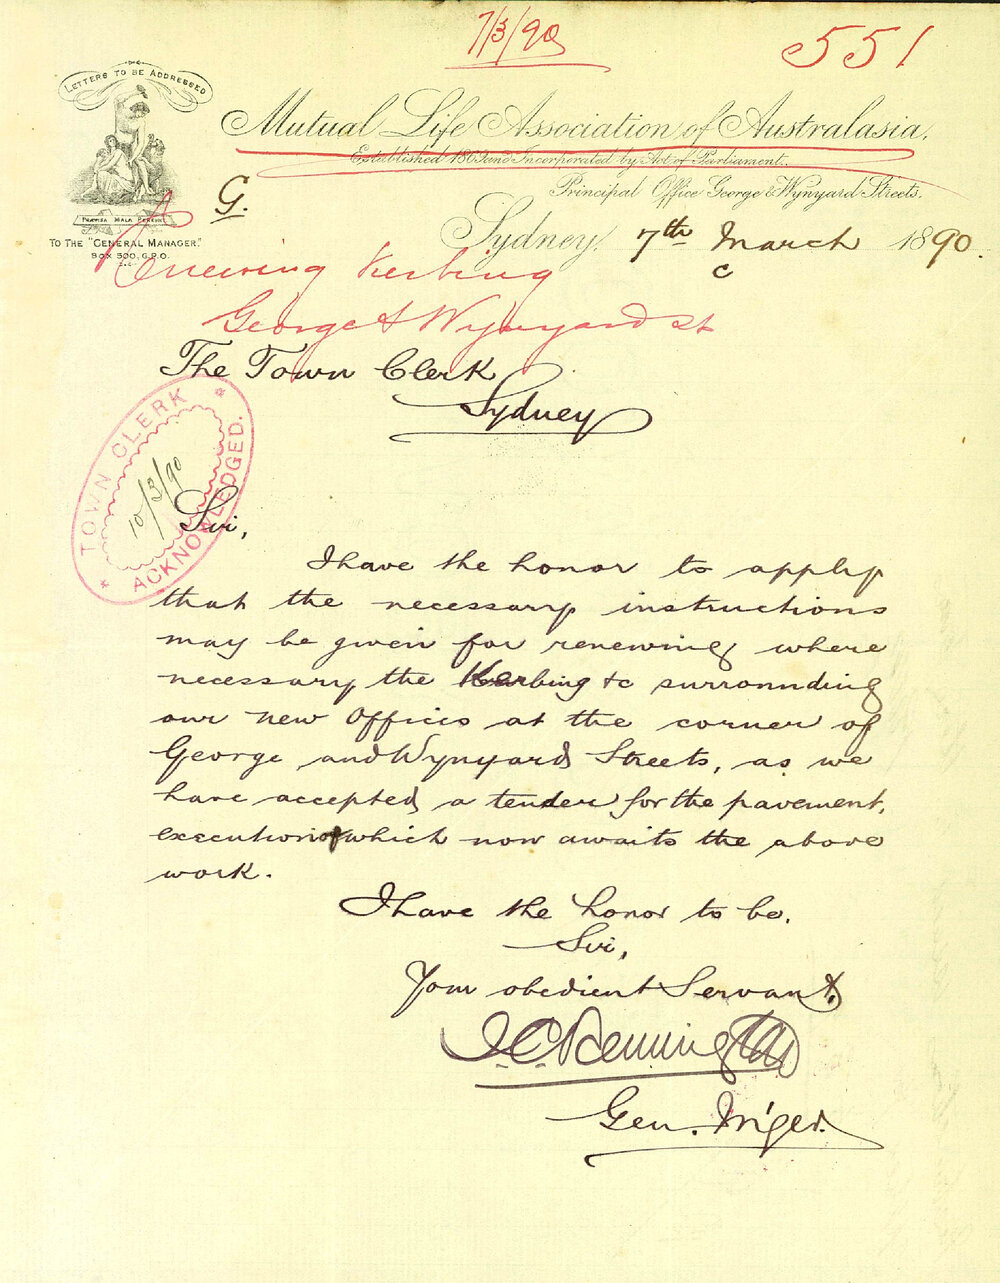 7/3/90
551
LETTERS TO BE ADDRESSED
Mutual Life Association of Australasia.
Established 1869 and Incorporated by Act of Parliament.
Principal Office George & Wynyard Streets.
PRAVISA MALA PEREUNT
TO THE "GENERAL MANAGER."
BOX 500, G.P.O.
G.
Sydney, 7th March 1890.
c
Renewing Kerbing
George & Wynyard St
The Town Clerk
Sydney
TOWN CLERK
10/3/90
ACKNOWLEDGED.
Sir,
I have the honor to apply
that the necessary instructions
may be given for renewing where
necessary the Kerbing &c surrounding
our new Offices at the corner of
George and Wynyard Streets, as we
have accepted a tender for the pavement,
execution of which now awaits the above
work.
I have the honor to be,
Sir,
Your obedient Servant,
Gen. M'ger.